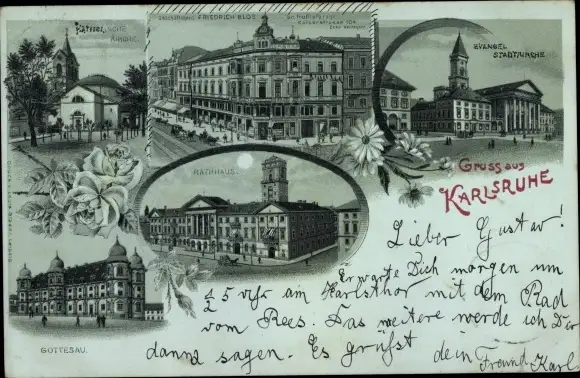 KATHOLISCHE
KIRCHE.
GROSSHERZOGL. FRIEDRICH BLOS
Gr. Hoflieferant
Kaiserstrasse 104
EVANGEL.
STADTKIRCHE
RATHHAUS.
GRUSS AUS
KARLSRUHE
GOTTESAU.
Lieber Gustav!
Erwarte Dich morgen um
1/2 5 Uhr am Karlsthor mit dem Rad
vom Rees. Das weitere werde ich Dir
dann sagen. Es grüßt dein
Freund Karl